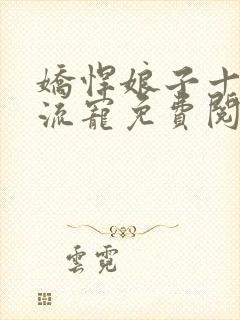 嬌悍娘子十
流寵免費閱
雲霓